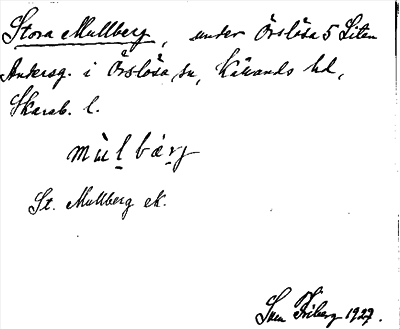 Stora Mullberg, under Örslösa 5 Liten
Andersg. i Örslösa sn, Kållands hd,
Skarab. l.
mùlbárj
St. Mullberg ek.
Sven Friberg 1927.